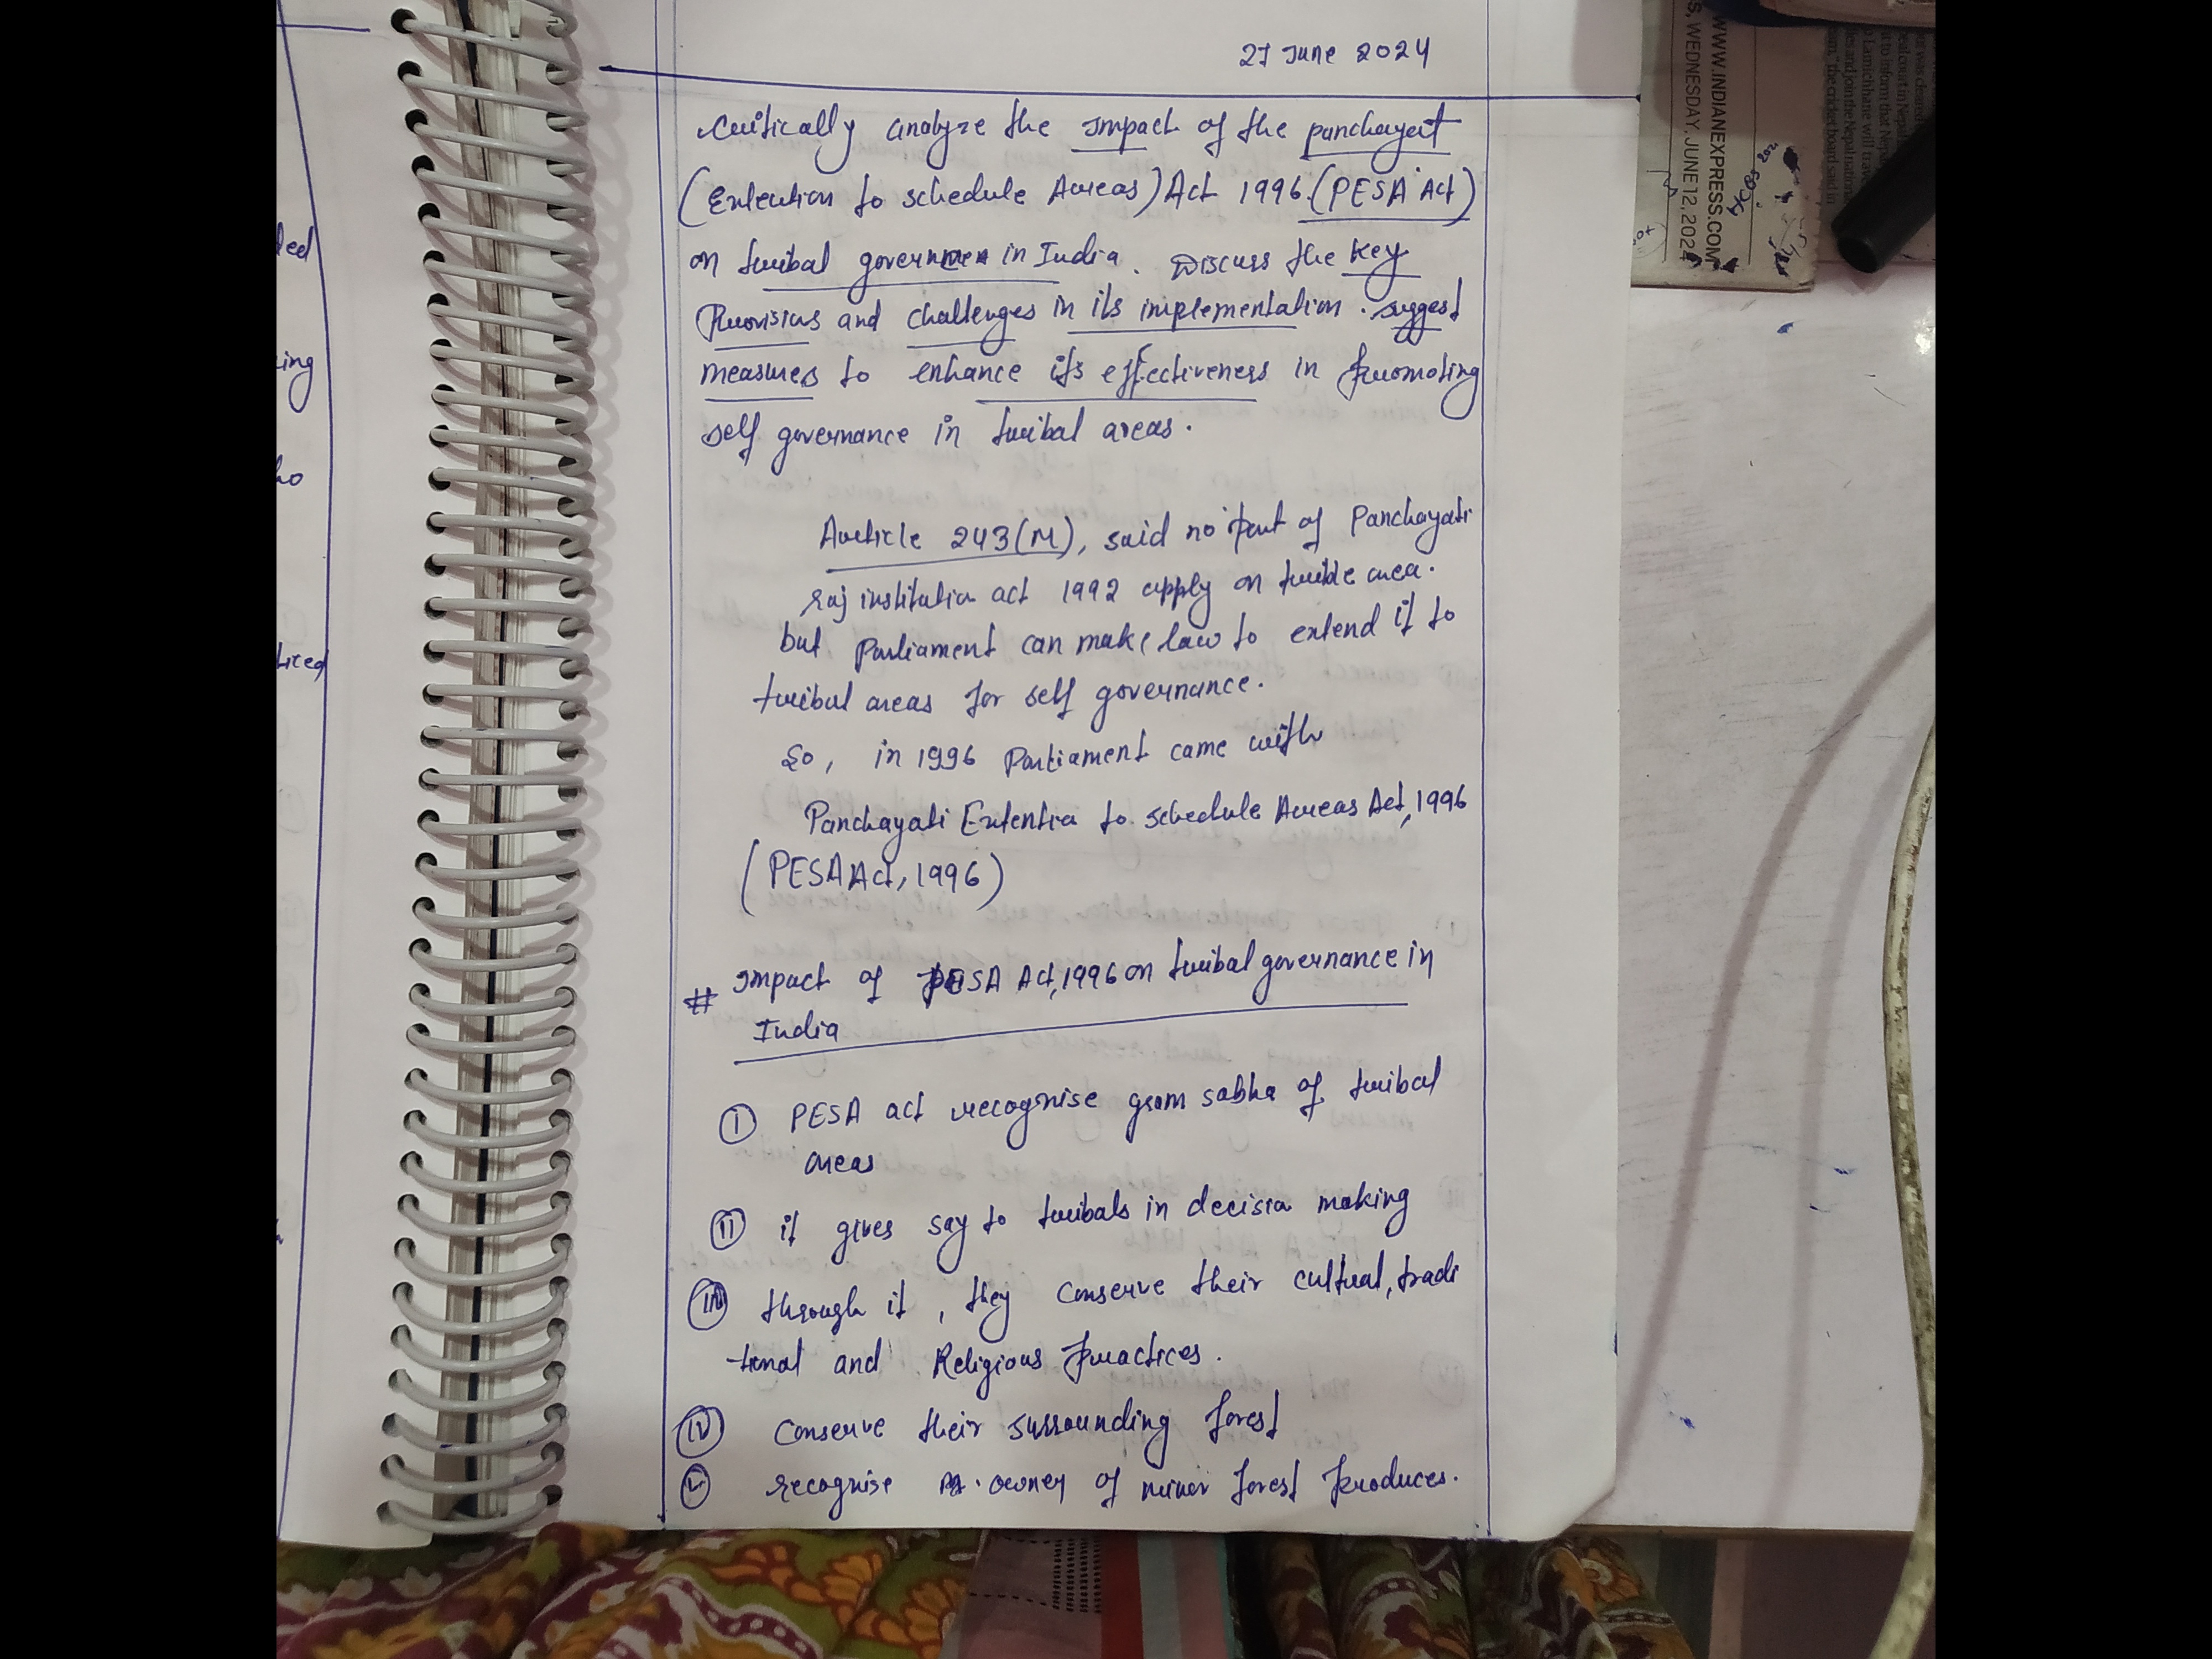 21 June 2024
Critically analyze the Impact of the panchayat
(Extention to schedule Areas) Act 1996 (PESA Act)
on tribal governmen in India. Discuss the Key
Provisions and challenges in its implementation. suggest
measures to enhance its effectiveness in promoting
self governance in tribal areas.
Article 243(M), said no part of Panchayati
raj institution act 1992 apply on trible area.
but Parliament can make law to extend it to
tribal areas for self governance.
So, in 1996 Parliament came with
Panchayati Extention to schedule Areas Act, 1996
(PESA Act, 1996)
# Impact of PESA Act, 1996 on tribal governance in
India
(I) PESA act recognise gram sabha of tribal
areas
(II) it gives say to tribals in decision making
(III) through it, they conserve their cultural, tradi
tional and Religious practices.
(IV) conserve their surrounding forest
(V) recognise owner of minor forest produces.
WWW.INDIANEXPRESS.COM
S, WEDNESDAY, JUNE 12, 2024
led
ing
ho
ticed